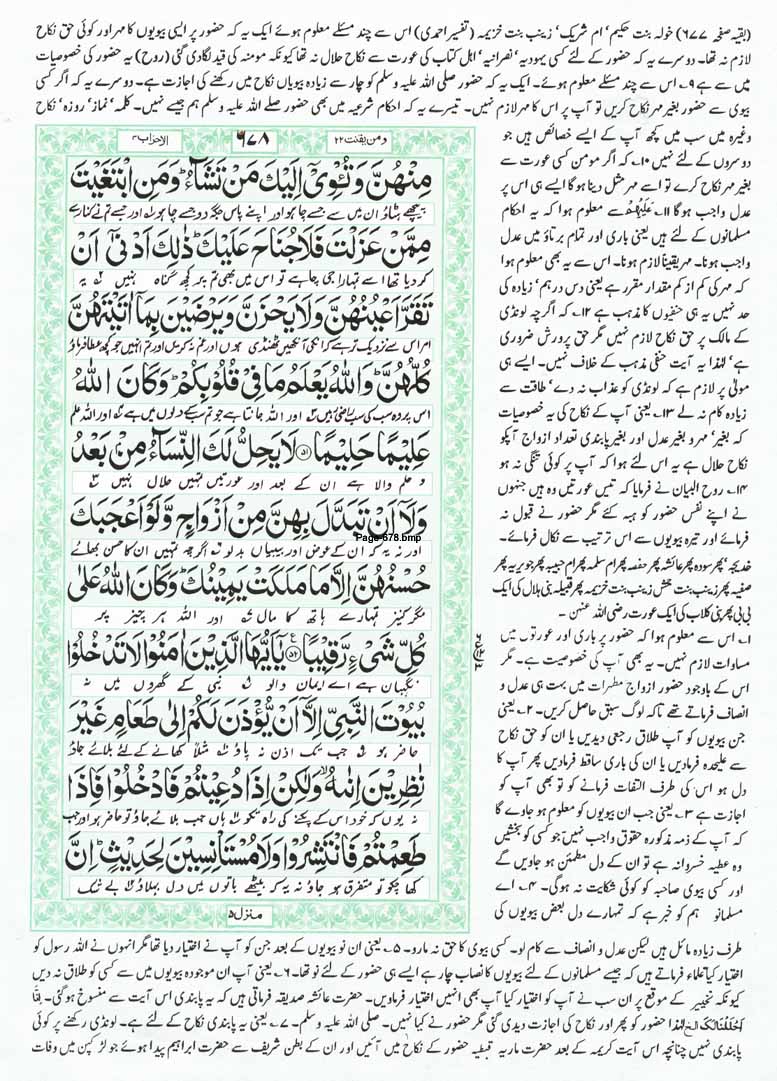 (بقیہ صفحہ ۶۷۷) خولہ بنت حکیم‘ ام شریک‘ زینب بنت خزیمہ (تفسیر احمدی) اس سے چند مسئلے معلوم ہوئے ایک یہ کہ حضور پر ایسی بیویوں کا مہر اور کوئی حق نکاح
لازم نہ تھا۔ دوسرے یہ کہ حضور کے لئے کسی یہودیہ‘ نصرانیہ‘ اہل کتاب کی عورت سے نکاح حلال نہ تھا کیونکہ مومنہ کی قید لگا دی گئی (روح) یہ حضور کی خصوصیات
میں سے ہے ۹۔ اس سے چند مسئلے معلوم ہوئے۔ ایک یہ کہ حضور صلی اللہ علیہ وسلم کو چار سے زیادہ بیویاں نکاح میں رکھنے کی اجازت ہے۔ دوسرے یہ کہ اگر کسی
بیوی سے حضور بغیر مہر نکاح کریں تو آپ پر اس کا مہر لازم نہیں۔ تیسرے یہ کہ احکام شرعیہ میں بھی حضور صلے اللہ علیہ وسلم ہم جیسے نہیں۔ کلمہ‘ نماز‘ روزہ‘ نکاح
وغیرہ میں سب میں کچھ آپ کے ایسے خصائص ہیں جو
دوسروں کے لئے نہیں ۱۰۔ کہ اگر مومن کسی عورت سے
بغیر مہر نکاح کرے تو اسے مہر مثل دینا ہو گا ایسے ہی اس پر
عدل واجب ہو گا ۱۱۔ عَلَیْہِمْ سے معلوم ہوا کہ یہ احکام
مسلمانوں کے لئے ہیں یعنی باری اور تمام برتاؤ میں عدل
واجب ہونا۔ مہر یقیناً لازم ہونا۔ اس سے یہ بھی معلوم ہوا
کہ مہر کی کم از کم مقدار مقرر ہے یعنی دس درہم‘ زیادہ کی
حد نہیں یہ ہی حنفیوں کا مذہب ہے ۱۲۔ کہ اگرچہ لونڈی
کے مالک پر حق نکاح لازم نہیں مگر حق پرورش ضروری
ہے‘ لہٰذا یہ آیت حنفی مذہب کے خلاف نہیں۔ ایسے ہی
مولیٰ پر لازم ہے کہ لونڈی کو عذاب نہ دے‘ طاقت سے
زیادہ کام نہ لے ۱۳۔ یعنی آپ کے نکاح کی یہ خصوصیات
کہ بغیر‘ مہر و بغیر عدل اور بغیر پابندی تعداد ازواج آپکو
نکاح حلال ہے یہ اس لئے ہوا کہ آپ پر کوئی تنگی نہ ہو
۱۴۔ روح البیان نے فرمایا کہ تیس عورتیں وہ ہیں جنہوں
نے اپنے نفس حضور کو ہبہ کئے مگر حضور نے قبول نہ
فرمائے اور تیرہ بیویوں سے اس ترتیب سے نکاح فرمائے۔
خدیجہ‘ پھر سودہ پھر عائشہ پھر حفصہ پھر ام سلمہ پھر ام حبیبہ پھر جویریہ پھر
صفیہ پھر زینب بنت جحش زینب بنت خزیمہ پھر قبیلہ بنی ہلال کی ایک
بی بی پھر بنی کلاب کی ایک عورت رضی اللہ عنہن۔
۱۔ اس سے معلوم ہوا کہ حضور پر باری اور عورتوں میں
مساوات لازم نہیں۔ یہ بھی آپ کی خصوصیت ہے۔ مگر
اس کے باوجود حضور ازواج مطہرات میں بہت ہی عدل و
انصاف فرماتے تھے تاکہ لوگ سبق حاصل کریں۔ ۲۔ یعنی
جن بیویوں کو آپ طلاق رجعی دیدیں یا ان کو حق نکاح
سے علیحدہ فرمادیں یا ان کی باری ساقط فرمادیں پھر آپ کا
دل ہو اس کی طرف التفات فرمانے کو تو بھی آپ کو
اجازت ہے ۳۔ یعنی جب ان بیویوں کو معلوم ہو جاوے گا
کہ آپ کے ذمہ مذکورہ حقوق واجب نہیں جو کسی کو بخشیں
وہ عطیہ خسروانہ ہے تو ان کے دل مطمئن ہو جاویں گے
اور کسی بیوی صاحبہ کو کوئی شکایت نہ ہوگی۔ ۴۔ اے
مسلمانو ہم کو خبر ہے کہ تمہارے دل بعض بیویوں کی
الاحزاب ۳۳
۶۷۸
ومن یقنت ۲۲
مِنْهُنَّ وَتُـْٔوِیْۤ اِلَیْكَ مَنْ تَشَآءُ ؕ وَمَنِ ابْتَغَیْتَ
پیچھے ہٹاؤ ان میں سے جسے چاہو اور اپنے پاس جگہ دو جسے چاہو اور جسے تم نے کنارے
مِمَّنْ عَزَلْتَ فَلَا جُنَاحَ عَلَیْكَ ؕ ذٰلِكَ اَدْنٰۤی اَنْ
کر دیا تھا اسے تمہارا جی چاہے تو اس میں بھی تم پر کچھ گناہ نہیں یہ
تَقَرَّ اَعْیُنُهُنَّ وَلَا یَحْزَنَّ وَیَرْضَیْنَ بِمَاۤ اٰتَیْتَهُنَّ
امر اس سے نزدیک تر ہے کہ انکی آنکھیں ٹھنڈی ہوں اور غم نہ کریں اور تم انہیں جو کچھ عطا فرماؤ
كُلُّهُنَّ ؕ وَاللّٰهُ یَعْلَمُ مَا فِیْ قُلُوْبِكُمْ ؕ وَكَانَ اللّٰهُ
اس پر وہ سب کی سب راضی رہیں اور اللہ جانتا ہے جو تم سب کے دلوں میں ہے اور اللہ علم
عَلِیْمًا حَلِیْمًا ۵۱ لَا یَحِلُّ لَكَ النِّسَآءُ مِنْۢ بَعْدُ
و حلم والا ہے ان کے بعد اور عورتیں تمہیں حلال نہیں
وَلَاۤ اَنْ تَبَدَّلَ بِهِنَّ مِنْ اَزْوَاجٍ وَّلَوْ اَعْجَبَكَ
اور نہ یہ کہ ان کے عوض اور بیبیاں بدلو اگرچہ تمہیں ان کا حسن بھائے
Page-678.bmp
حُسْنُهُنَّ اِلَّا مَا مَلَكَتْ یَمِیْنُكَ ؕ وَكَانَ اللّٰهُ عَلٰی
مگر کنیز تمہارے ہاتھ کا مال اور اللہ ہر چیز پر
كُلِّ شَیْءٍ رَّقِیْبًا ۵۲ یٰۤاَیُّهَا الَّذِیْنَ اٰمَنُوْا لَا تَدْخُلُوْا
نگہبان ہے اے ایمان والو نبی کے گھروں میں نہ
بُیُوْتَ النَّبِیِّ اِلَّاۤ اَنْ یُّؤْذَنَ لَكُمْ اِلٰی طَعَامٍ غَیْرَ
حاضر ہو جب تک اذن نہ پاؤ مثلاً کھانے کے لئے بلائے جاؤ
نٰظِرِیْنَ اِنٰىهُ وَلٰكِنْ اِذَا دُعِیْتُمْ فَادْخُلُوْا فَاِذَا
نہ یوں کہ خود اس کے پکنے کی راہ تکو ہاں جب بلائے جاؤ تو حاضر ہو اور جب
طَعِمْتُمْ فَانْتَشِرُوْا وَلَا مُسْتَاْنِسِیْنَ لِحَدِیْثٍ ؕ اِنَّ
کھا چکو تو متفرق ہو جاؤ نہ یہ کہ بیٹھے باتوں میں دل بہلاؤ بے شک
منزل ۵
طرف زیادہ مائل ہیں لیکن عدل و انصاف سے کام لو۔ کسی بیوی کا حق نہ مارو۔ ۵۔ یعنی ان نو بیویوں کے بعد جن کو آپ نے اختیار دیا تھا مگر انہوں نے اللہ رسول کو
اختیار کیا علماء فرماتے ہیں کہ جیسے مسلمانوں کے لئے بیویوں کا نصاب چار ہے ایسے ہی حضور کے لئے نو تھا۔ ۶۔ یعنی آپ ان موجودہ بیویوں میں سے کسی کو طلاق نہ دیں
کیونکہ تخییر کے موقع پر ان سب نے آپ کو اختیار کیا آپ بھی انہیں اختیار فرمادیں۔ حضرت عائشہ صدیقہ فرماتی ہیں کہ یہ پابندی اس آیت سے منسوخ ہو گئی۔ اِنَّا
اَحْلَلْنَا لَكَ الخ لہٰذا حضور کو پھر اور نکاح کی اجازت دیدی گئی مگر حضور نے کیا نہیں۔ صلی اللہ علیہ وسلم۔ ۷۔ یعنی یہ پابندی نکاح کے لئے ہے۔ لونڈی رکھنے پر کوئی
پابندی نہیں چنانچہ اس آیت کریمہ کے بعد حضرت ماریہ قبطیہ حضور کے نکاح میں آئیں اور ان کے بطن شریف سے حضرت ابراہیم پیدا ہوئے جو لڑکپن میں وفات